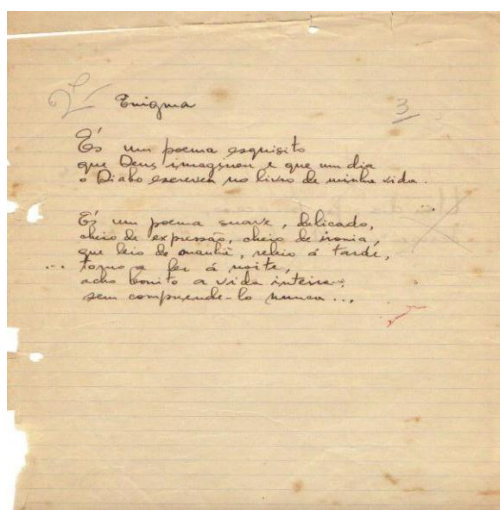 Enigma
3
És um poema esquisito
que Deus imaginou e que um dia
o Diabo escreveu no livro de minha vida.
És um poema suave, delicado,
cheio de expressão, cheio de ironia,
que leio de manhã, releio á tarde,
... torno a ler á noite,
acho bonito a vida inteira,
sem compreende-lo nunca...